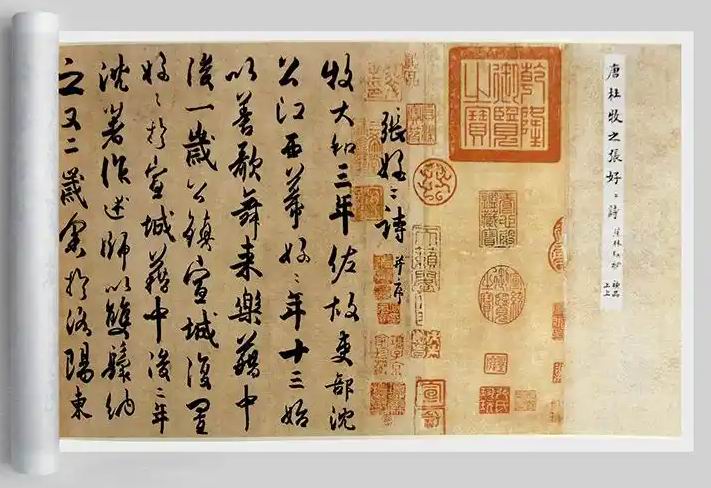 唐杜牧之張好〻詩
上上
乾隆御覽之寶
宣統御覽之寶
張好〻詩 并序
牧大和三年佐故吏部沈
公江西幕好〻年十三始
以善歌舞来樂籍中
後一歲公鎮宣城復置
好〻於宣城籍中後二年
沈著作述師以雙鬟納
之又二歲余於洛陽東